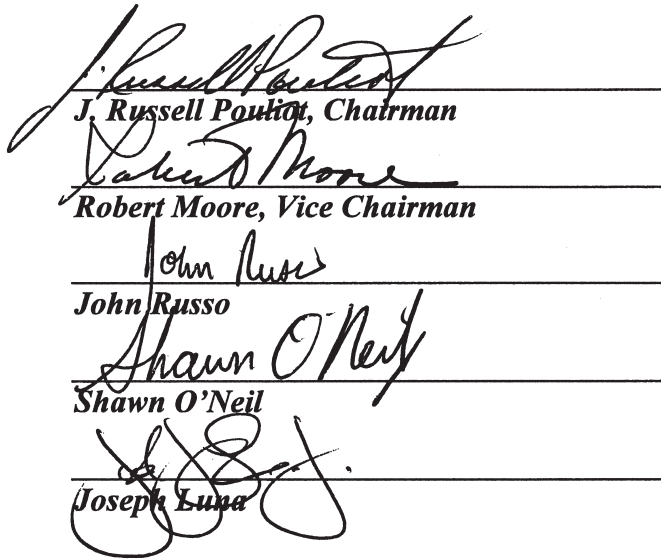 J. Russell Pouliot
J. Russell Pouliot, Chairman
Robert Moore
Robert Moore, Vice Chairman
John Russo
John Russo
Shawn O'Neil
Shawn O'Neil
Joseph Luna